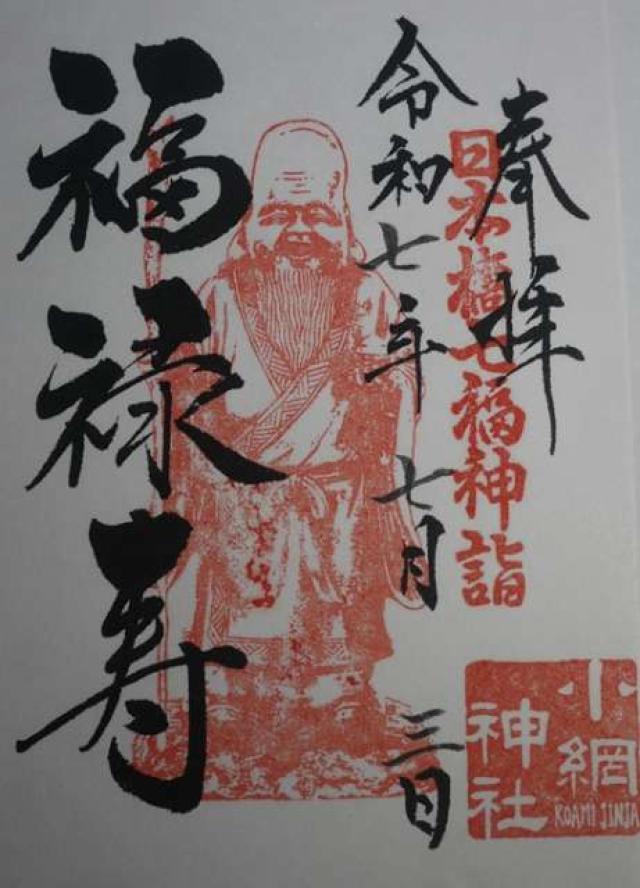 奉拝
日本橋七福神詣
令和七年七月三日
福禄寿
小網
神社
KOAMI JINJA